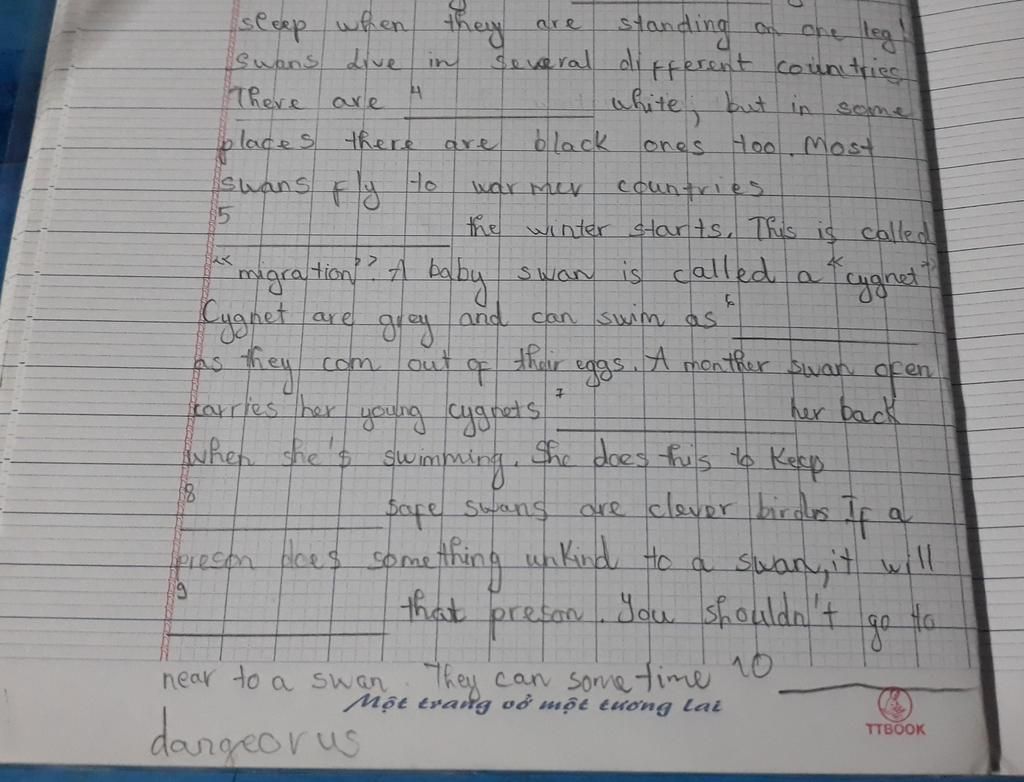 sleep when they are standing on one leg!
Swans live in several different countries
There are 4 ____ white, but in some
places there are black ones too. Most
swans fly to warmer countries
5 ____ the winter starts. This is called
"migration". A baby swan is called a "cygnet"
Cygnet are grey and can swim as 6 ____
as they com out of their eggs. A monther swan open
carries her young cygnets 7 ____ her back
when she's swimming. She does this to keep
8 ____ safe swans are clever birdrs If a
preson does something unkind to a swan, it will
9 ____ that preson. You shouldn't go to
near to a swan. They can sometime 10 ____
dangeorus
Một trang vở một tương lai
TTBOOK